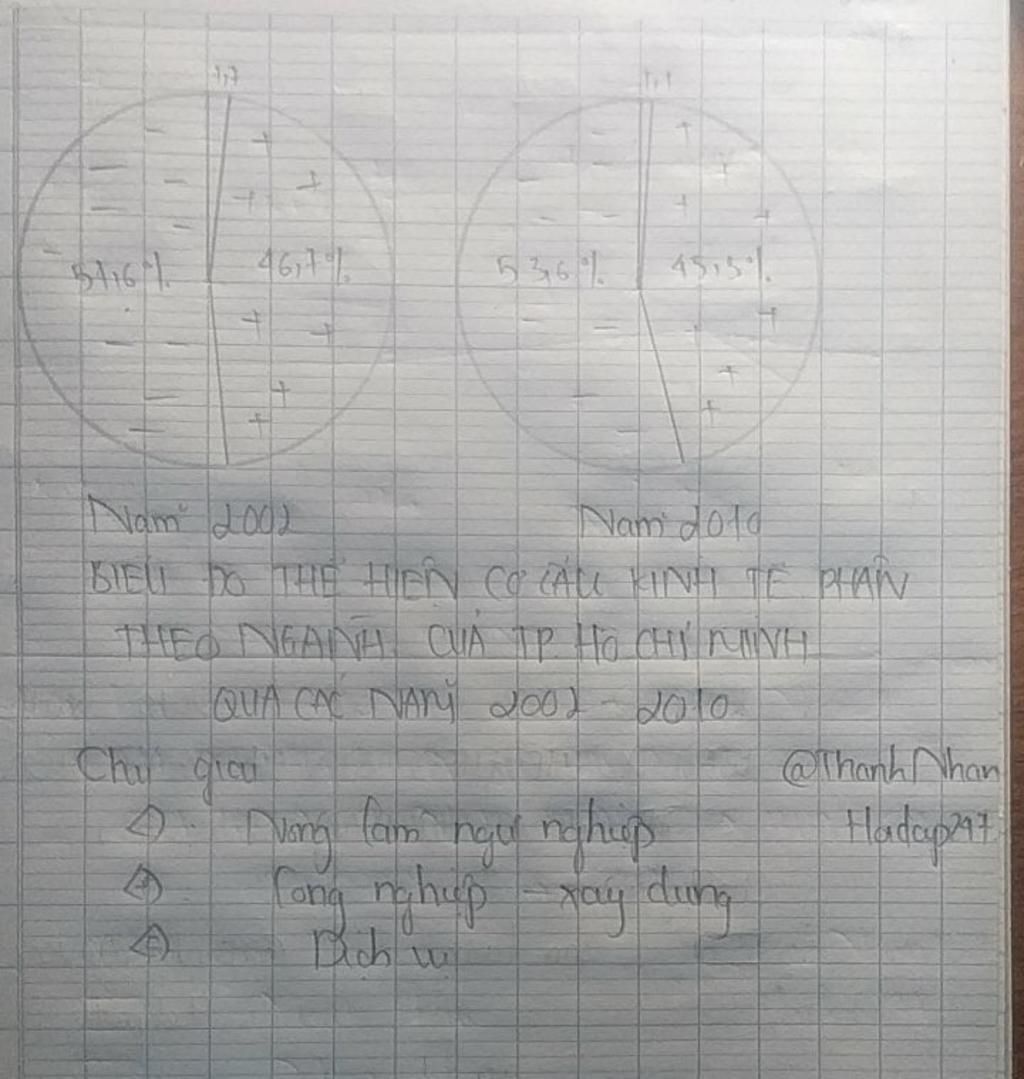 1,7
1,1
51,6%
46,7%
53,6%
45,3%
Năm 2002
Năm 2010
BIỂU ĐỒ THỂ HIỆN CƠ CẤU KINH TẾ PHÂN
THEO NGÀNH CỦA TP. HỒ CHÍ MINH
QUA CÁC NĂM 2002 - 2010
Chú giải
@ThanhNhan
Nông lâm ngư nghiệp
Hadap247
Công nghiệp - xây dựng
Dịch vụ